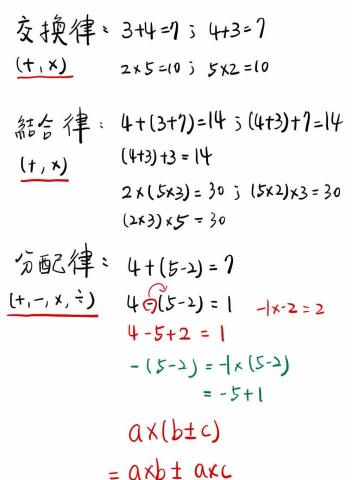 交換律：3+4=7；4+3=7
(+,×) 2×5=10；5×2=10
結合律：4+(3+7)=14；(4+3)+7=14
(+,×) (4+3)+3=14
2×(5×3)=30；(5×2)×3=30
(2×3)×5=30
分配律：4+(5-2)=7
(+,-,×,÷) 4-(5-2)=1 -1×-2=2
4-5+2=1
-(5-2)=-1×(5-2)
=-5+1
a×(b±c)
=a×b±a×c